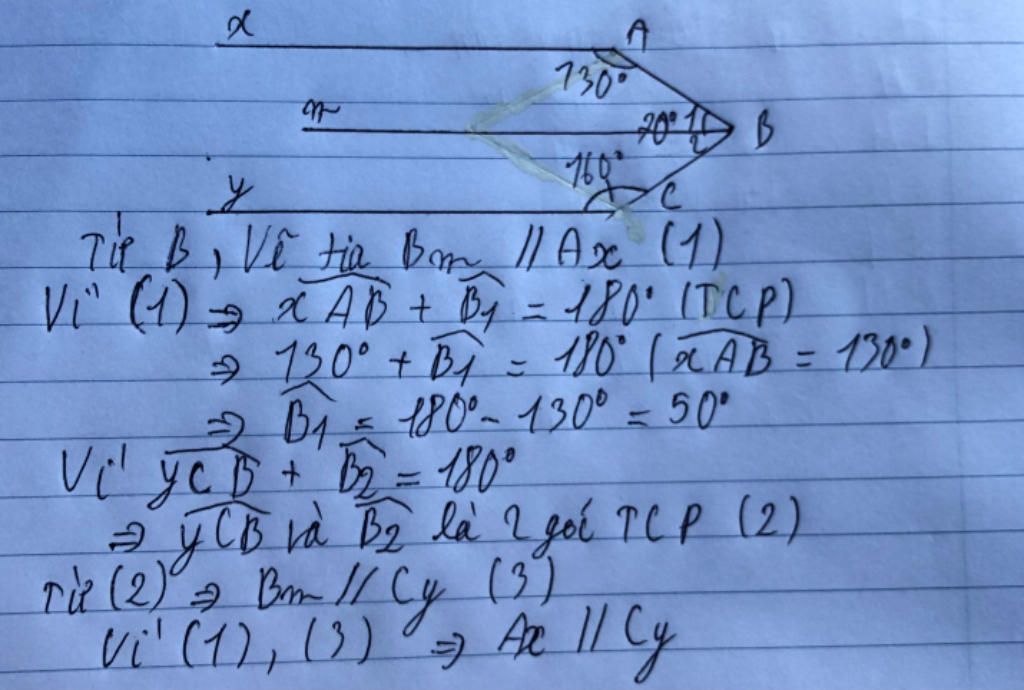 x
A
130°
m
70° 1
2
B
160°
y
C
Từ B, Vẽ tia Bm // Ax (1)
Vì (1) ⇒ \widehat{xAB} + \widehat{B_1} = 180° (TCP)
⇒ 130° + \widehat{B_1} = 180° (\widehat{xAB} = 130°)
⇒ \widehat{B_1} = 180° - 130° = 50°
Vì \widehat{yCB} + \widehat{B_2} = 180°
⇒ \widehat{yCB} và \widehat{B_2} là 2 góc TCP (2)
Từ (2) ⇒ Bm // Cy (3)
Vì (1), (3) ⇒ Ax // Cy